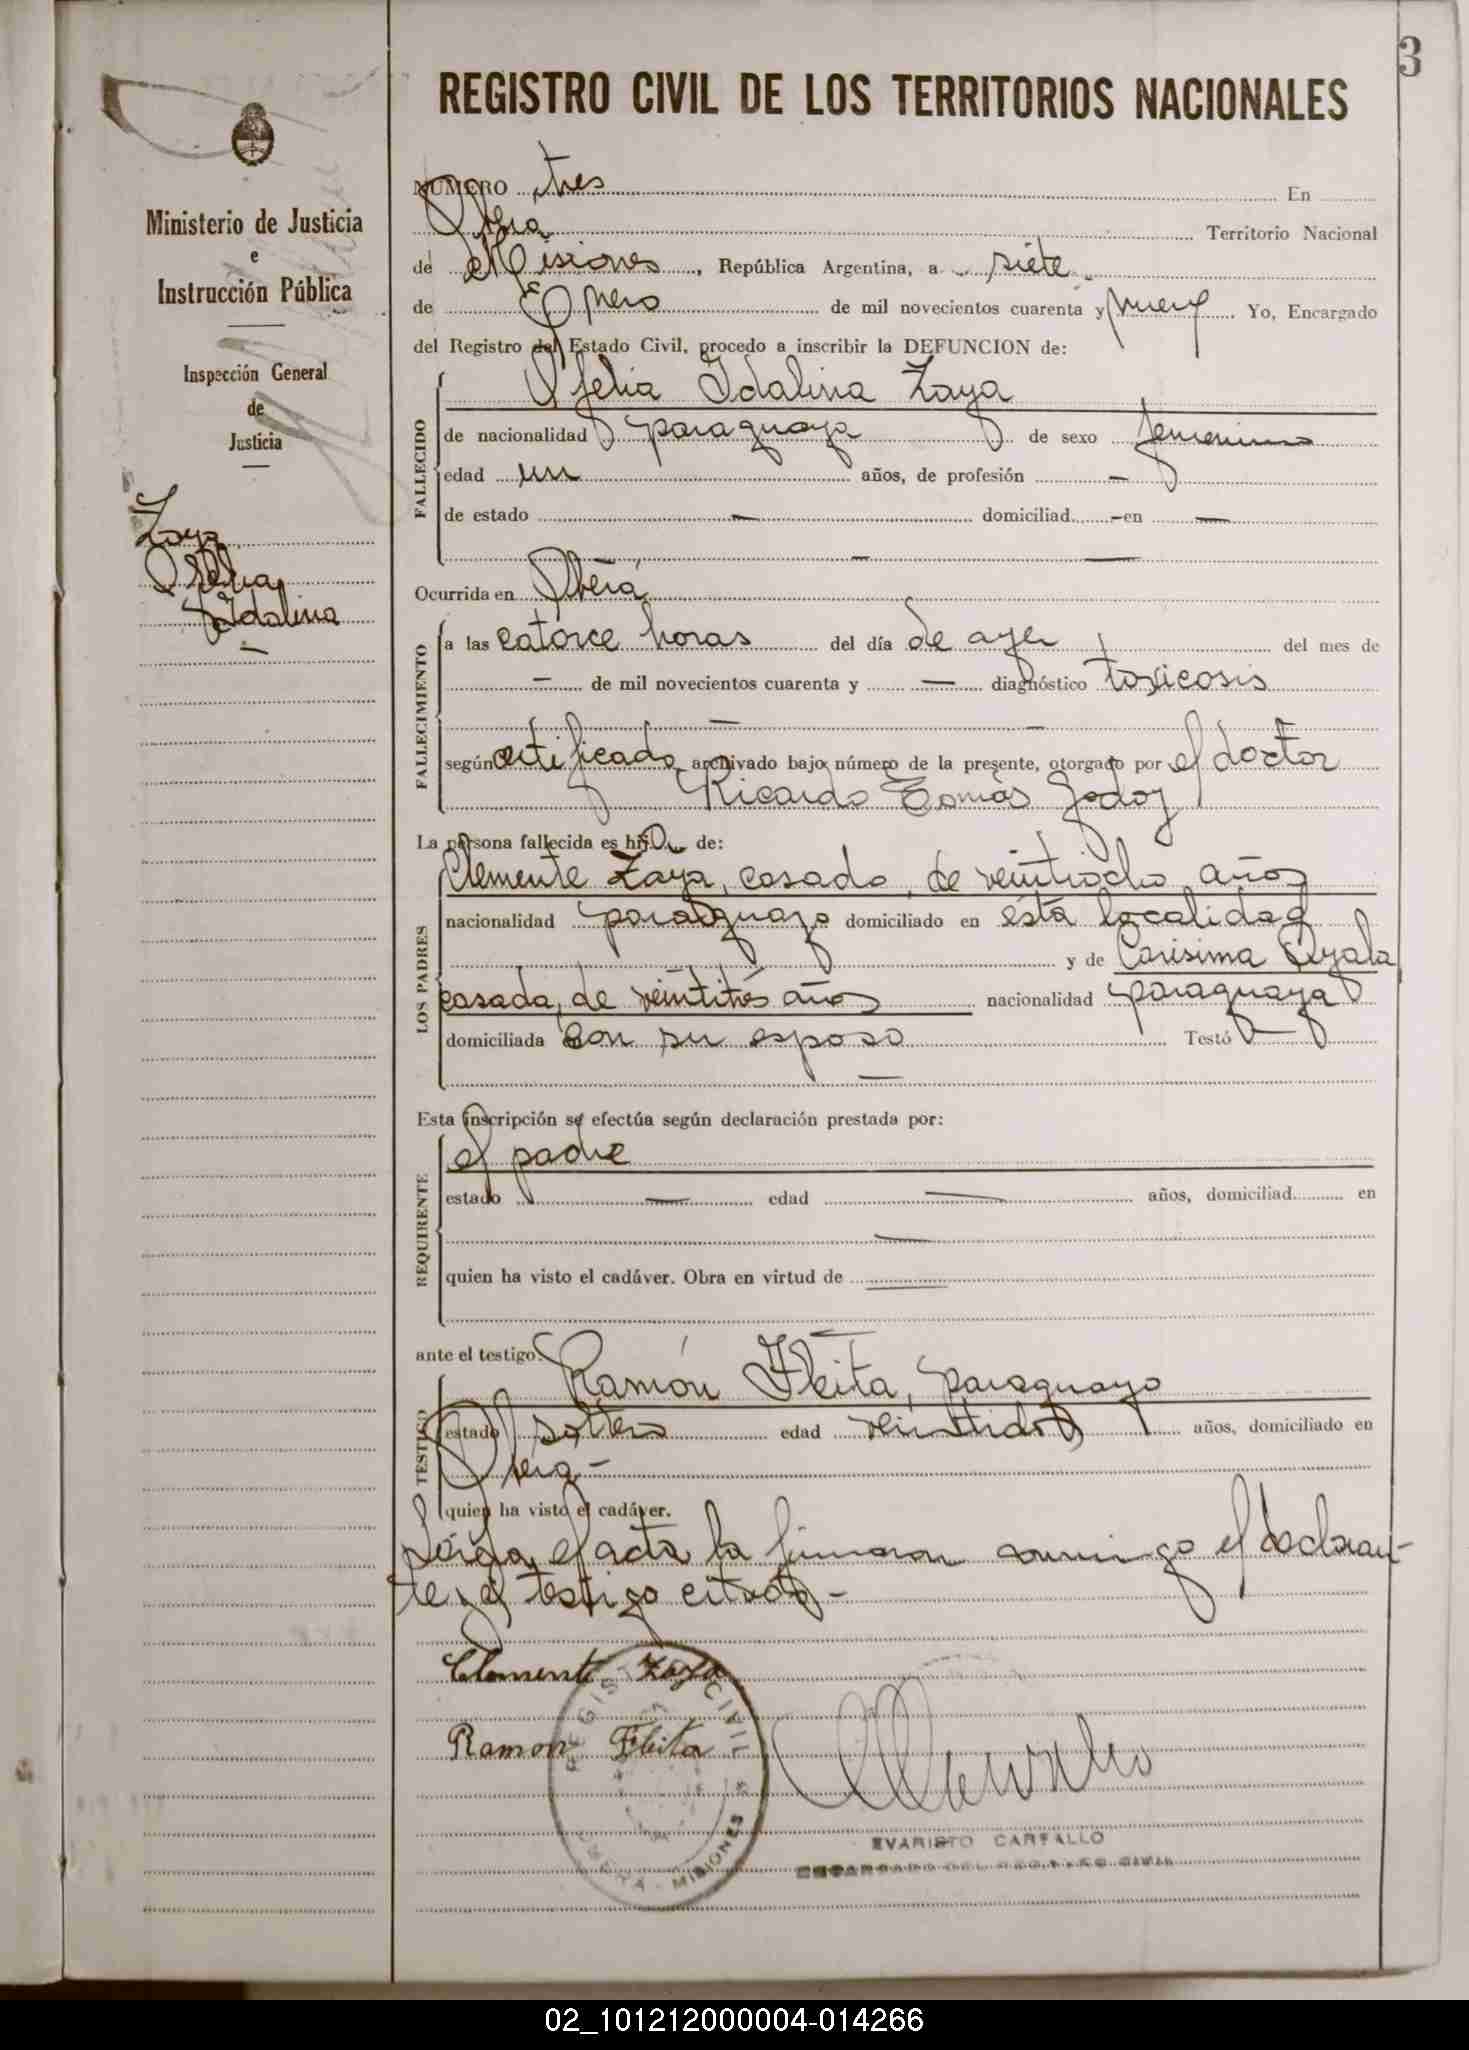 3
REGISTRO CIVIL DE LOS TERRITORIOS NACIONALES
Ministerio de Justicia
e
Instrucción Pública
Inspección General
de
Justicia
Zaya
Ofelia
Idalina
NUMERO tres En
Oberá Territorio Nacional
de Misiones, República Argentina, a siete
de Enero de mil novecientos cuarenta y nueve Yo, Encargado
del Registro del Estado Civil, procedo a inscribir la DEFUNCION de:
FALLECIDO
Ofelia Idalina Zaya
de nacionalidad paraguaya de sexo femenino
edad un años, de profesión —
de estado — domiciliad — en —
— —
Ocurrida en Oberá
FALLECIMIENTO
a las catorce horas del día de ayer del mes de
— de mil novecientos cuarenta y — diagnóstico toxicosis
— —
según certificado archivado bajo número de la presente, otorgado por el doctor
Ricardo Tomás Godoy
La persona fallecida es hija de:
LOS PADRES
Clemente Zaya, casado, de veintiocho años
nacionalidad paraguayo domiciliado en esta localidad
y de Carisima Ayala
casada, de veintitrés años nacionalidad paraguaya
domiciliada con su esposo Testó —
—
Esta inscripción se efectúa según declaración prestada por:
REQUIRENTE
el padre
estado — edad — años, domiciliad en
—
quien ha visto el cadáver. Obra en virtud de —
—
ante el testigo:
TESTIGO
Ramón Fleita, paraguayo
estado soltero edad veintidós años, domiciliado en
Oberá -
quien ha visto el cadáver.
Leída el acta la firmaron conmigo el declaran-
te y el testigo citado -
Clemente Zaya
Ramon Fleita
REGISTRO CIVIL
OBERA - MISIONES
EVARISTO CARVALLO
ENCARGADO DEL REGISTRO CIVIL
02_101212000004-014266